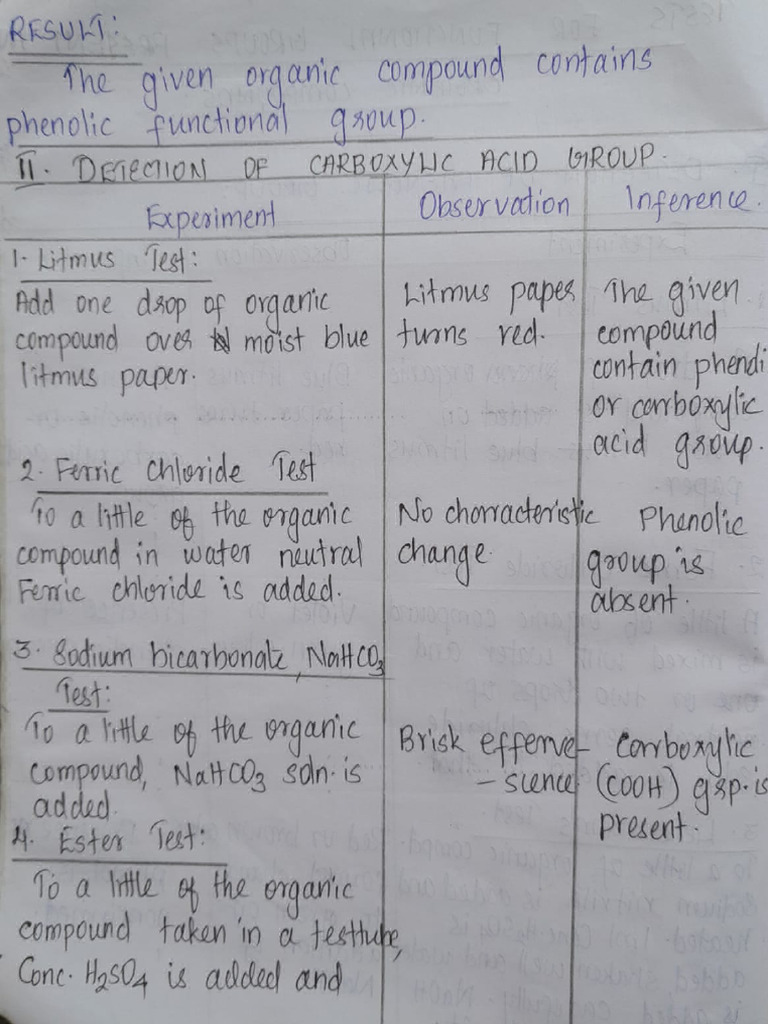 RESULT:
The given organic compound contains
phenolic functional group.
II. DETECTION OF CARBOXYLIC ACID GROUP.
Experiment
Observation
Inference.
1. Litmus Test:
Add one drop of organic
compound over moist blue
litmus paper.
Litmus paper
turns red.
The given
compound
contain phenoli
or carboxylic
acid group.
2. Ferric Chloride Test
To a little of the organic
compound in water neutral
Ferric chloride is added.
No charracteristic
change.
Phenolic
group is
absent.
3. Sodium bicarbonate, NaHCO3
Test:
To a little of the organic
compound, NaHCO3 soln. is
added.
Brisk efferve-
-scence
Carboxylic
(COOH) grp. is
present.
4. Ester Test:
To a little of the organic
compound taken in a testtube,
Conc. H2SO4 is added and